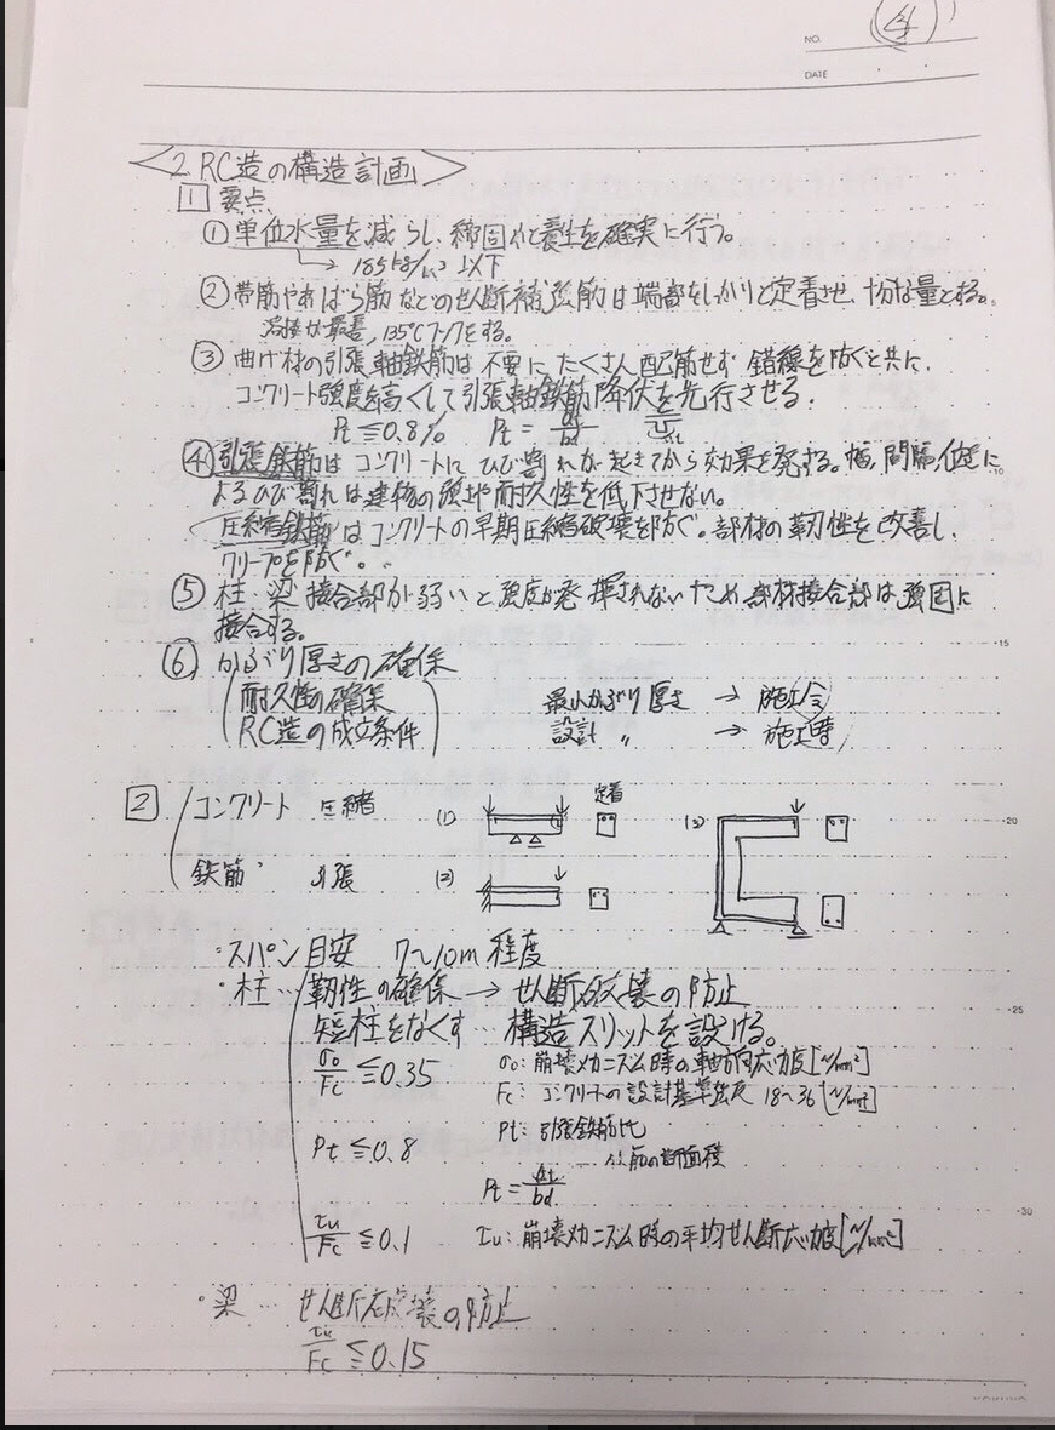 ④
NO.
DATE
<2 RC造の構造計画>
1 要点
① 単位水量を減らし、締固めと養生を確実に行う。
→ 185kg/m³以下
② 帯筋やあばら筋などのせん断補強筋は端部をしっかりと定着させ、十分な量とする。
溶接が最善, 135°フックをする。
③ 曲げ材の引張軸鉄筋は不要にたくさん配筋せず 錯綜を防ぐと共に、
コンクリート強度を高くして引張軸鉄筋降伏を先行させる。
Pt≦0.8% Pt = at/bd
④ 引張鉄筋はコンクリートにひび割れが起きてから効果を発する。幅,間隔,位置に
よるひび割れは建物の強さや耐久性を低下させない。
圧縮鉄筋はコンクリートの早期圧縮破壊を防ぐ。部材の靭性を改善し、
クリープを防ぐ。
⑤ 柱・梁 接合部が弱いと強度が発揮されないため、部材接合部は強固に
接合する。
⑥ かぶり厚さの確保
耐久性の確保 最小かぶり厚さ → 施工
RC造の成立条件 設計 〃 → 施工時
2 コンクリート 圧縮 (1) 定着
鉄筋 引張 (2)
・スパン目安 7~10m程度
・柱… 靭性の確保→せん断破壊の防止
短柱をなくす…構造スリットを設ける。
σ₀/Fc ≦0.35 σ₀: 崩壊メカニズム時の軸方向応力度[N/mm²]
Fc: コンクリートの設計基準強度 18~36 [N/mm²]
Pt: 引張鉄筋比
Pt ≦0.8 筋の断面積
Pt = at/bd
τu/Fc ≦0.1 τu: 崩壊メカニズム時の平均せん断応力度[N/mm²]
・梁… せん断破壊の防止
τu/Fc ≦0.15